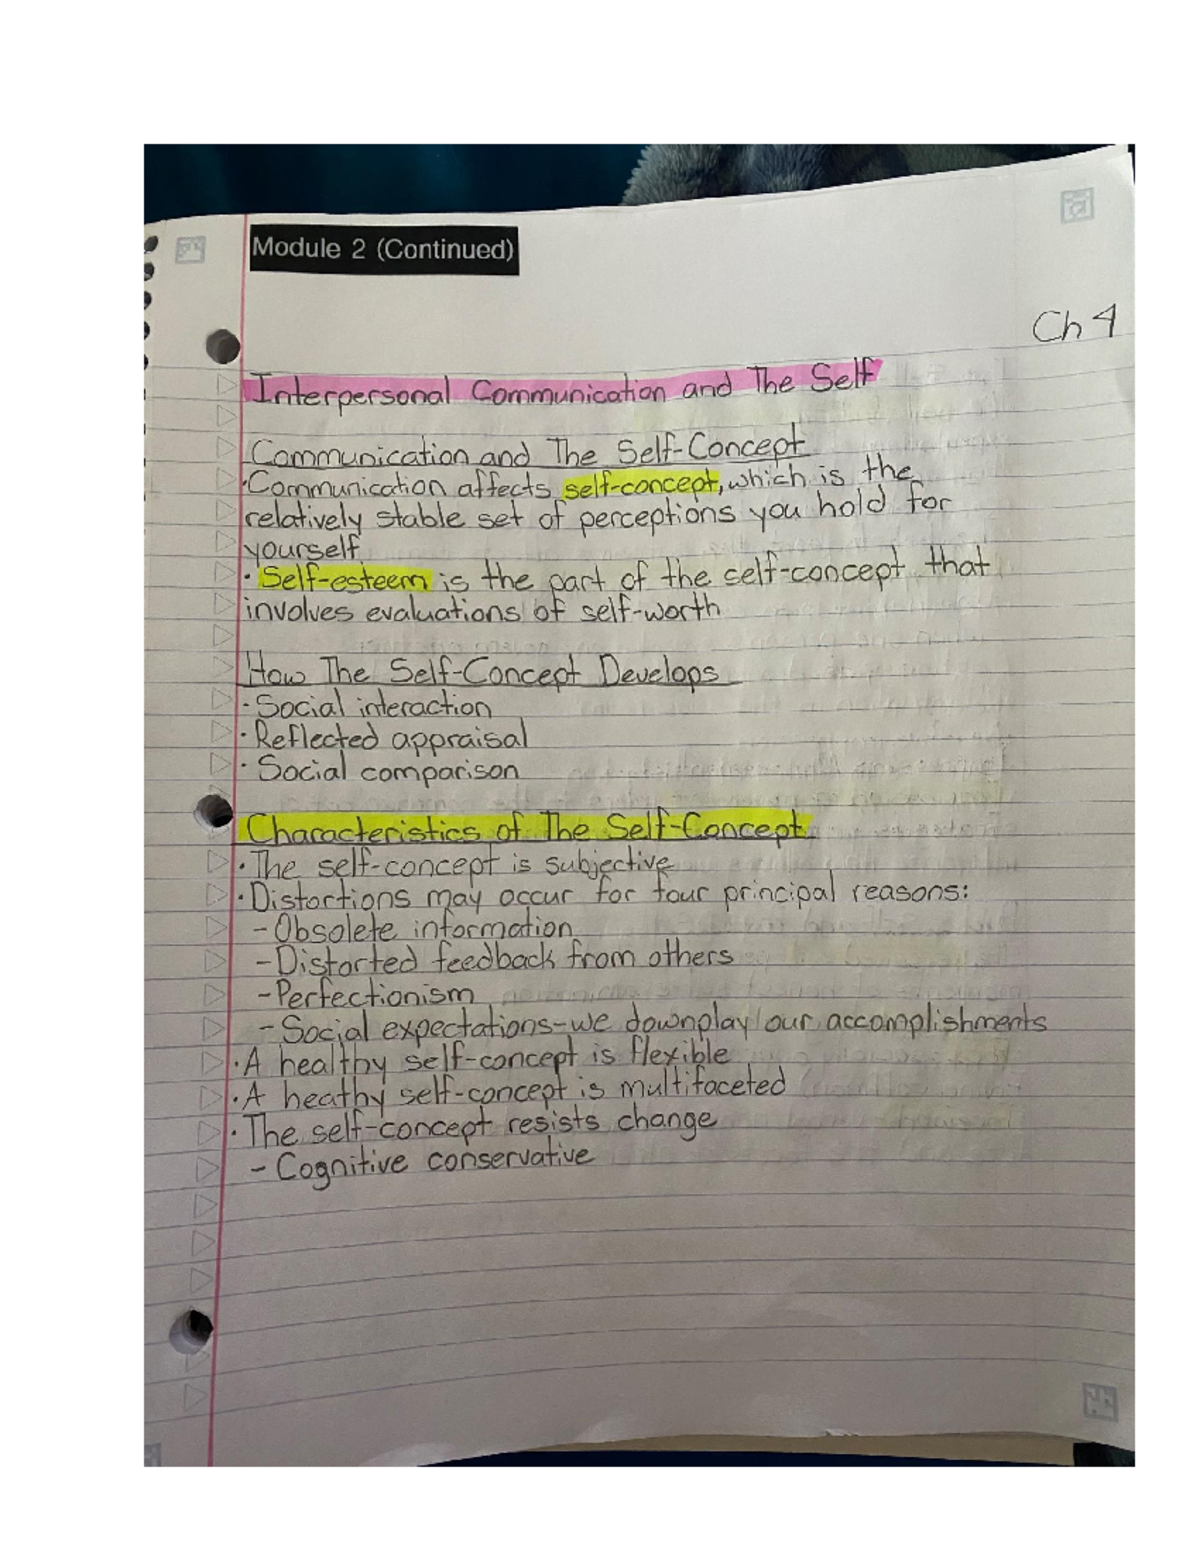 Module 2 (Continued)
Ch 4
Interpersonal Communication and The Self
Communication and The Self-Concept
·Communication affects self-concept, which is the
relatively stable set of perceptions you hold for
yourself
· Self-esteem is the part of the self-concept that
involves evaluations of self-worth
How The Self-Concept Develops
· Social interaction
· Reflected appraisal
· Social comparison
Characteristics of The Self-Concept
· The self-concept is subjective
· Distortions may occur for four principal reasons:
- Obsolete information
- Distorted feedback from others
- Perfectionism
- Social expectations-we downplay our accomplishments
· A healthy self-concept is flexible
· A heathy self-concept is multifaceted
· The self-concept resists change
- Cognitive conservative